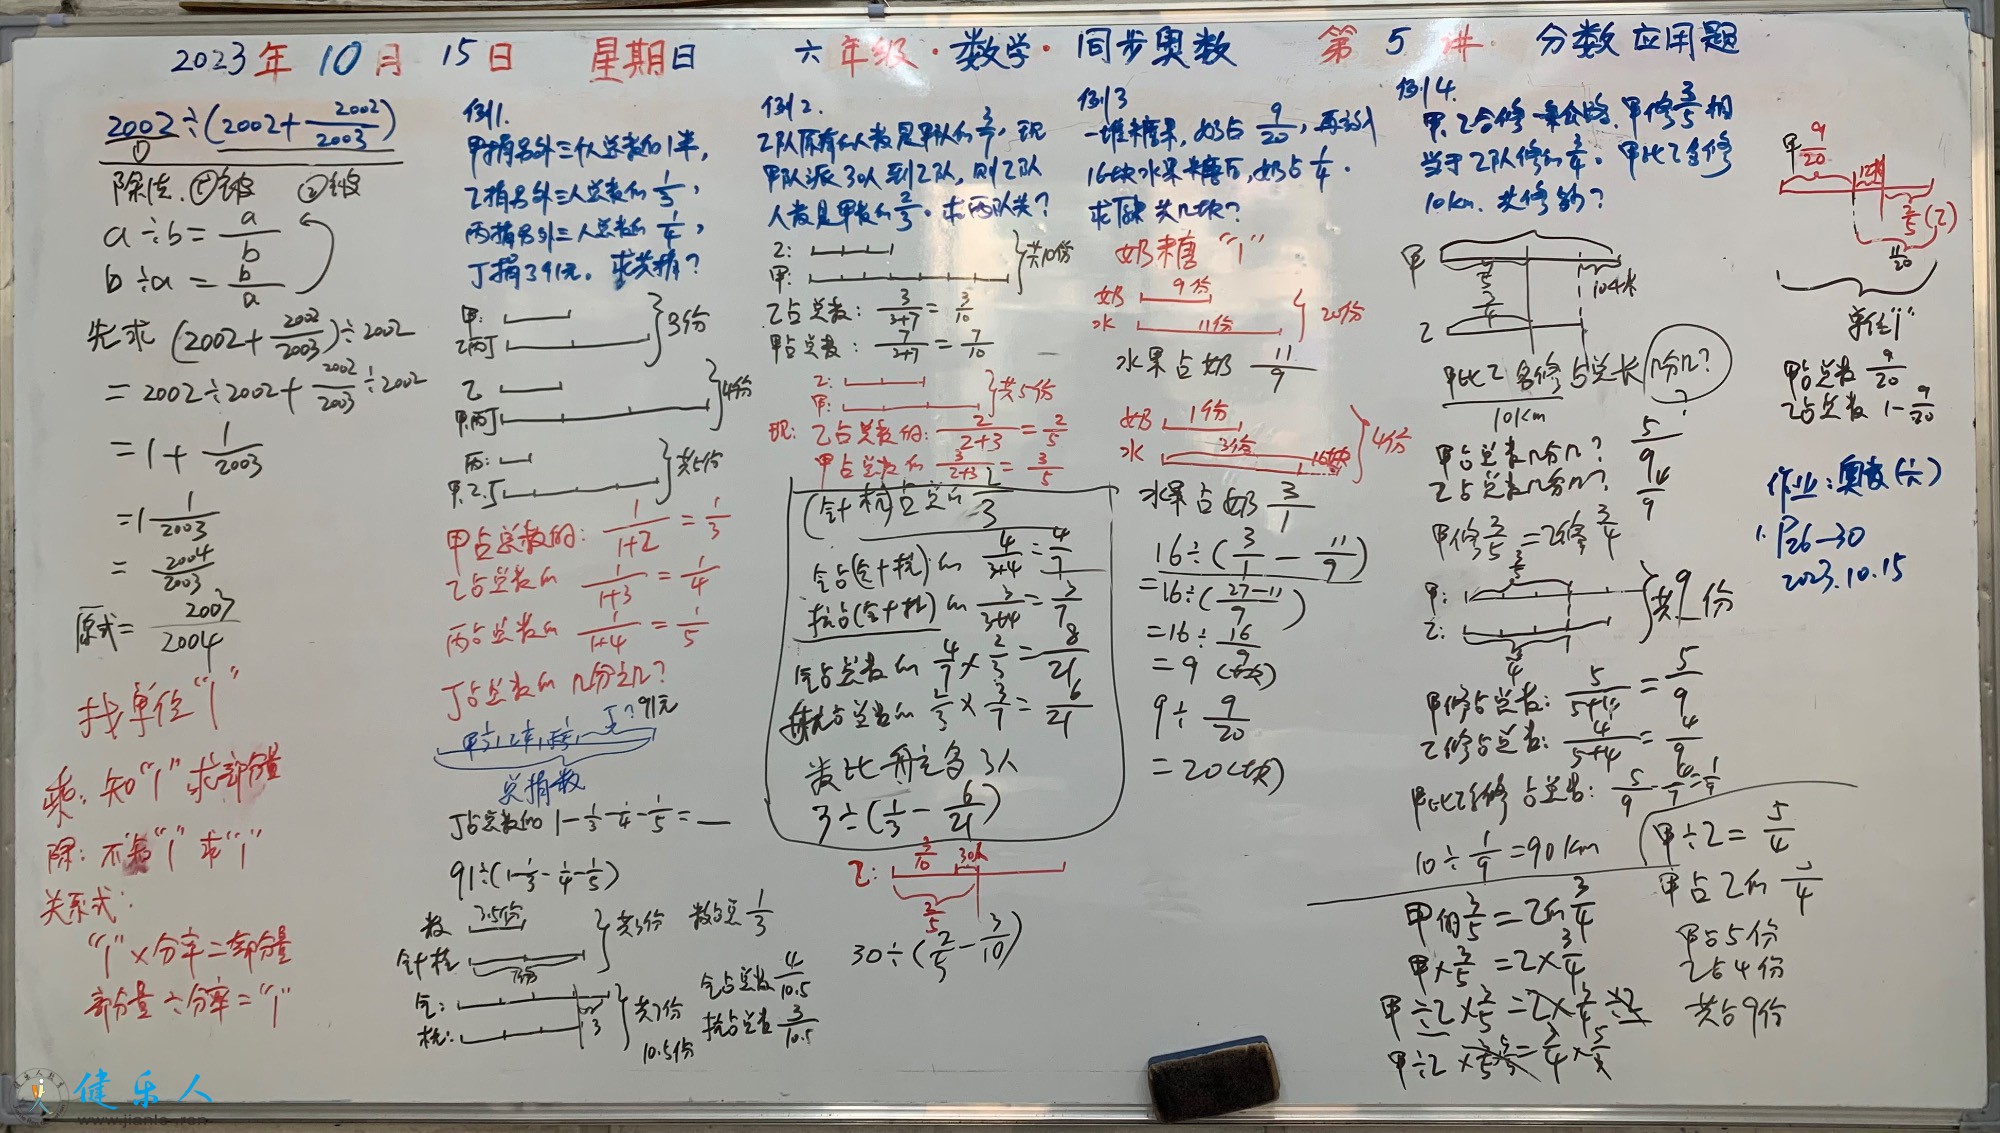 2023年 10月 15日 星期日 六年级·数学·同步奥数 第5讲 分数应用题
2002÷(2002+2002/2003)
除法
a÷b=a/b
b÷a=b/a
先求 (2002+2002/2003)÷2002
=2002÷2002+2002/2003÷2002
=1+1/2003
=1 1/2003
=2004/2003
原式=2003/2004
找单位“1”
乘:知“1”求部分量
除:不知“1”求“1”
关系式:
“1”×分率=部分量
部分量÷分率=“1”
例1.
甲捐另外三人总数的1半,
乙捐另外三人总数的1/3,
丙捐另外三人总数的1/4,
丁捐391元。求共捐?
甲:
乙丙丁
3份
乙
甲丙丁
4份
丙:
甲.乙.丁
共5份
甲占总数的:1/(1+2)=1/3
乙占总数的 1/(1+3)=1/4
丙占总数的 1/(1+4)=1/5
丁占总数的几分之几?
丁?91元
总捐数
丁占总数的 1-1/3-1/4-1/5=
91÷(1-1/3-1/4-1/5)
数 3.5份
7份
共3份
数占总1/3
3
共7份
10.5份
占总数4/10.5
占总数3/10.5
例2.
乙队原有的人数是甲队的3/7,现
甲队派30人到乙队,则乙队
人数是甲数的2/3。求两队共?
乙:
甲:
共10份
乙占总数:3/(3+7)=3/10
甲占总数:7/(3+7)=7/10
乙:
甲:
共5份
现:乙占总数的:2/(2+3)=2/5
甲占总数的 3/(2+3)=3/5
占总的2/3
4/(3+4)=4/7
3/(3+4)=3/7
占总数的 4/7×2/3=8/21
占总数的 2/3×3/7=6/21
多3人
3÷(1/3-6/21)
乙: 3/10 30人
2/5
30÷(2/5-3/10)
例3
一堆糖果,奶占9/20,再放入
16块水果糖后,奶占1/4.
求原共几块?
奶糖“1”
奶 9份
水 11份
20份
水果占奶 11/9
奶 1份
水 3份 16块
4份
水果占奶 3/1
16÷(3/1-11/9)
=16÷((27-11)/9)
=16÷16/9
=9(块)
9÷9/20
=20(块)
例4.
甲.乙合修一条公路.甲修3/5相
当于乙队修的3/4。甲比乙多修
10km.共修多少?
甲
3/5
3/4
乙
甲比乙多修占总长几分几?
10km
甲占总数几分几? 5/9
乙占总数几分几? 4/9
甲修3/5=乙修3/4
甲: 3/5
乙: 3/4
共9份
甲修占总数:5/(5+4)=5/9
乙修占总数:4/(5+4)=4/9
甲比乙多修占总数:5/9-4/9=1/9
10÷1/9=90km
甲的3/5=乙的3/4
甲×3/5=乙×3/4
甲÷乙×3/5=乙×3/4÷乙
甲÷乙×3/5×5/3=3/4×5/3
甲÷乙=5/4
甲占乙的5/4
甲占5份
乙占4份
共占9份
甲9/20
2/5(乙)
11/20
单位“1”
甲占总数9/20
乙占总数1-9/20
作业:奥数(六)
1.P26-30
2023.10.15
健乐人